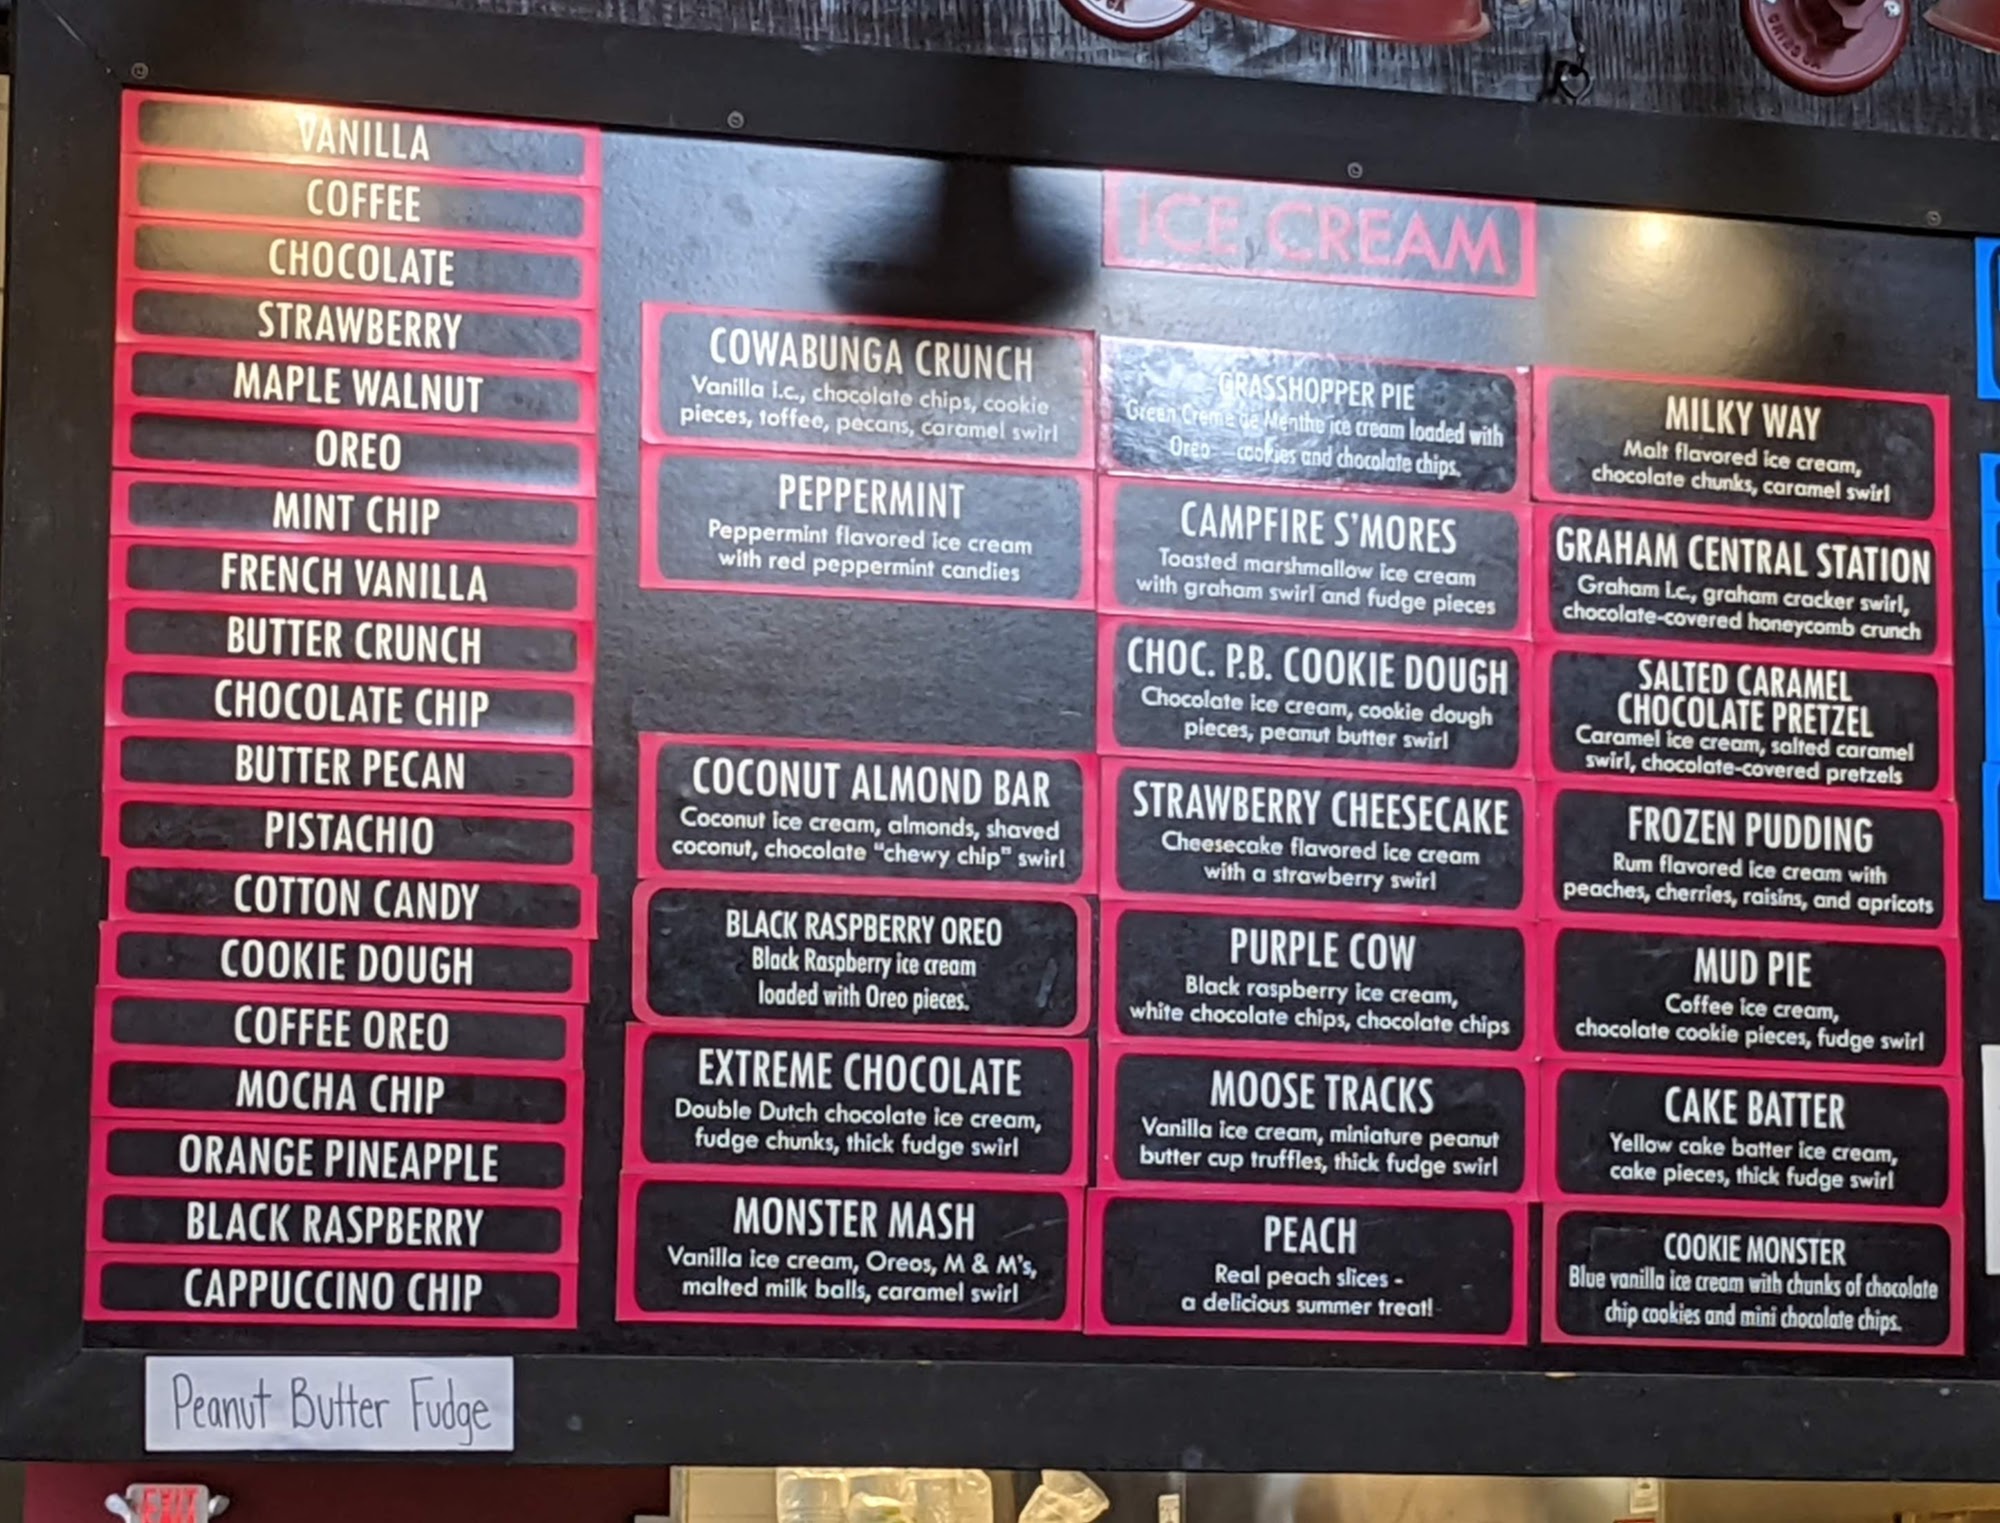 VANILLA
COFFEE
CHOCOLATE
STRAWBERRY
MAPLE WALNUT
OREO
MINT CHIP
FRENCH VANILLA
BUTTER CRUNCH
CHOCOLATE CHIP
BUTTER PECAN
PISTACHIO
COTTON CANDY
COOKIE DOUGH
COFFEE OREO
MOCHA CHIP
ORANGE PINEAPPLE
BLACK RASPBERRY
CAPPUCCINO CHIP
Peanut Butter Fudge
ICE CREAM
COWABUNGA CRUNCH
Vanilla i.c., chocolate chips, cookie
pieces, toffee, pecans, caramel swirl
PEPPERMINT
Peppermint flavored ice cream
with red peppermint candies
COCONUT ALMOND BAR
Coconut ice cream, almonds, shaved
coconut, chocolate "chewy chip" swirl
BLACK RASPBERRY OREO
Black Raspberry ice cream
loaded with Oreo pieces.
EXTREME CHOCOLATE
Double Dutch chocolate ice cream,
fudge chunks, thick fudge swirl
MONSTER MASH
Vanilla ice cream, Oreos, M & M's,
malted milk balls, caramel swirl
GRASSHOPPER PIE
Green Creme de Menthe ice cream loaded with
Oreo cookies and chocolate chips.
CAMPFIRE S'MORES
Toasted marshmallow ice cream
with graham swirl and fudge pieces
CHOC. P.B. COOKIE DOUGH
Chocolate ice cream, cookie dough
pieces, peanut butter swirl
STRAWBERRY CHEESECAKE
Cheesecake flavored ice cream
with a strawberry swirl
PURPLE COW
Black raspberry ice cream,
white chocolate chips, chocolate chips
MOOSE TRACKS
Vanilla ice cream, miniature peanut
butter cup truffles, thick fudge swirl
PEACH
Real peach slices -
a delicious summer treat!
MILKY WAY
Malt flavored ice cream,
chocolate chunks, caramel swirl
GRAHAM CENTRAL STATION
Graham i.c., graham cracker swirl,
chocolate-covered honeycomb crunch
SALTED CARAMEL
CHOCOLATE PRETZEL
Caramel ice cream, salted caramel
swirl, chocolate-covered pretzels
FROZEN PUDDING
Rum flavored ice cream with
peaches, cherries, raisins, and apricots
MUD PIE
Coffee ice cream,
chocolate cookie pieces, fudge swirl
CAKE BATTER
Yellow cake batter ice cream,
cake pieces, thick fudge swirl
COOKIE MONSTER
Blue vanilla ice cream with chunks of chocolate
chip cookies and mini chocolate chips.
EXIT